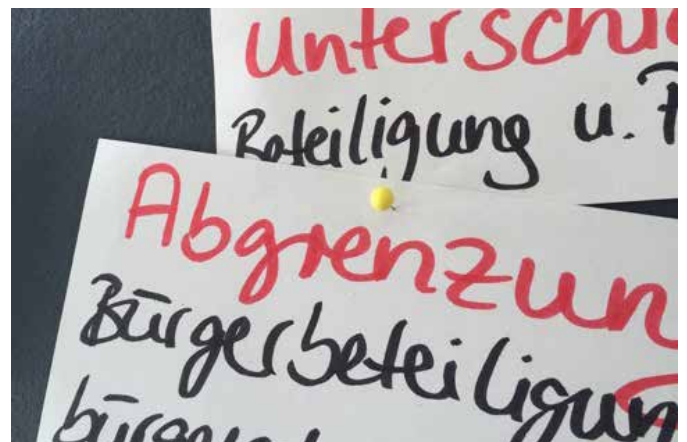 Unterschie
Beteiligung u. P
Abgrenzun
Bürgerbeteiligun
bürger